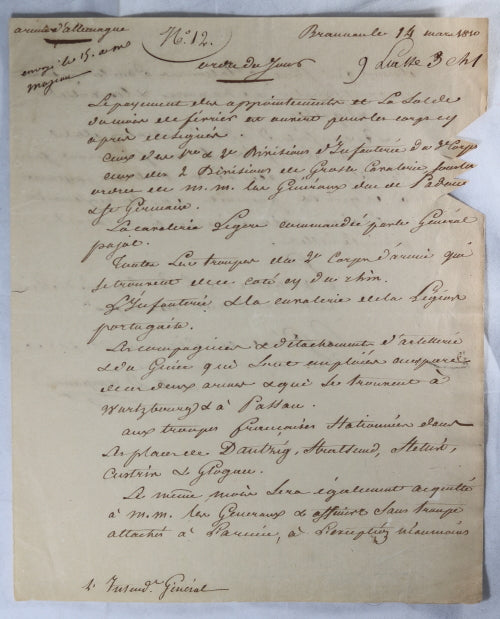 armée d'allemagne
N.º 12.
Braunau le 14 mars 1810
envoyé le 15. a me
ordre du Jour
9 Liasse 3
Le payement des appointements et la Solde
du mois de février est ouvert pour les corps cy
après désignés.
Ceux des 1re & 2e Divisions d'Infanterie du 3e Corps
ceux des 2 Divisions de Grosse Cavalerie sous les
ordres de M.M. les Généraux duc de Padoue
& St Germain.
La cavalerie Legere commandée par le Général
pajol.
Toutes Les troupes du 2e Corps d'armée qui
se trouvent de ce coté cy du rhin.
L'Infanterie & la cavalerie de la Légion
portugaise.
Les compagnies & détachement d'artillerie
& du Génie qui Sont employées aux parcs
de ces deux armes & qui Se trouvent à
Wurtzbourg & à Passau.
aux troupes françaises Stationnées dans
Les places de Dantzig, Stralsund, Stetin,
Custrin & Glogau.
Le même mois Sera également acquitté
à M.M. les Generaux & officiers Sans troupe
attachés à l'armée, à l'exception néanmoins
L'Intend.t Général